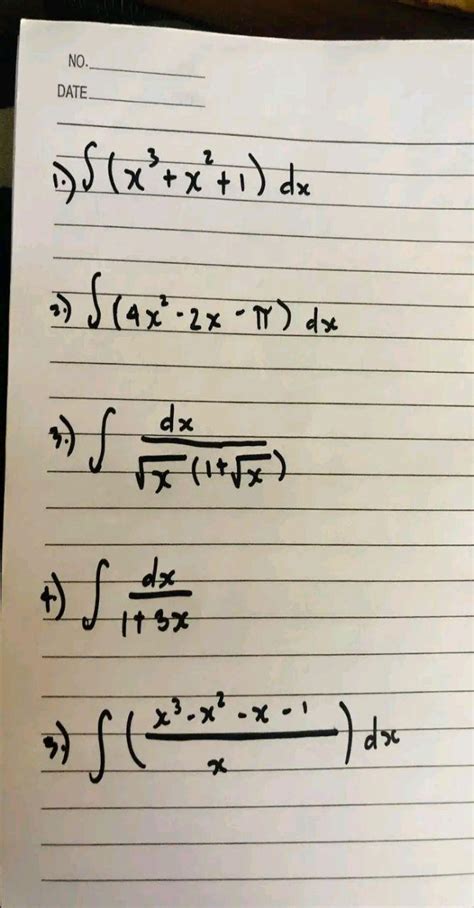 NO.
DATE
1.) ∫ (x³ + x² + 1) dx
2.) ∫ (4x² - 2x - π) dx
3.) ∫ dx / √x (1+√x)
4.) ∫ dx / 1+3x
5.) ∫ (x³ - x² - x - 1 / x) dx